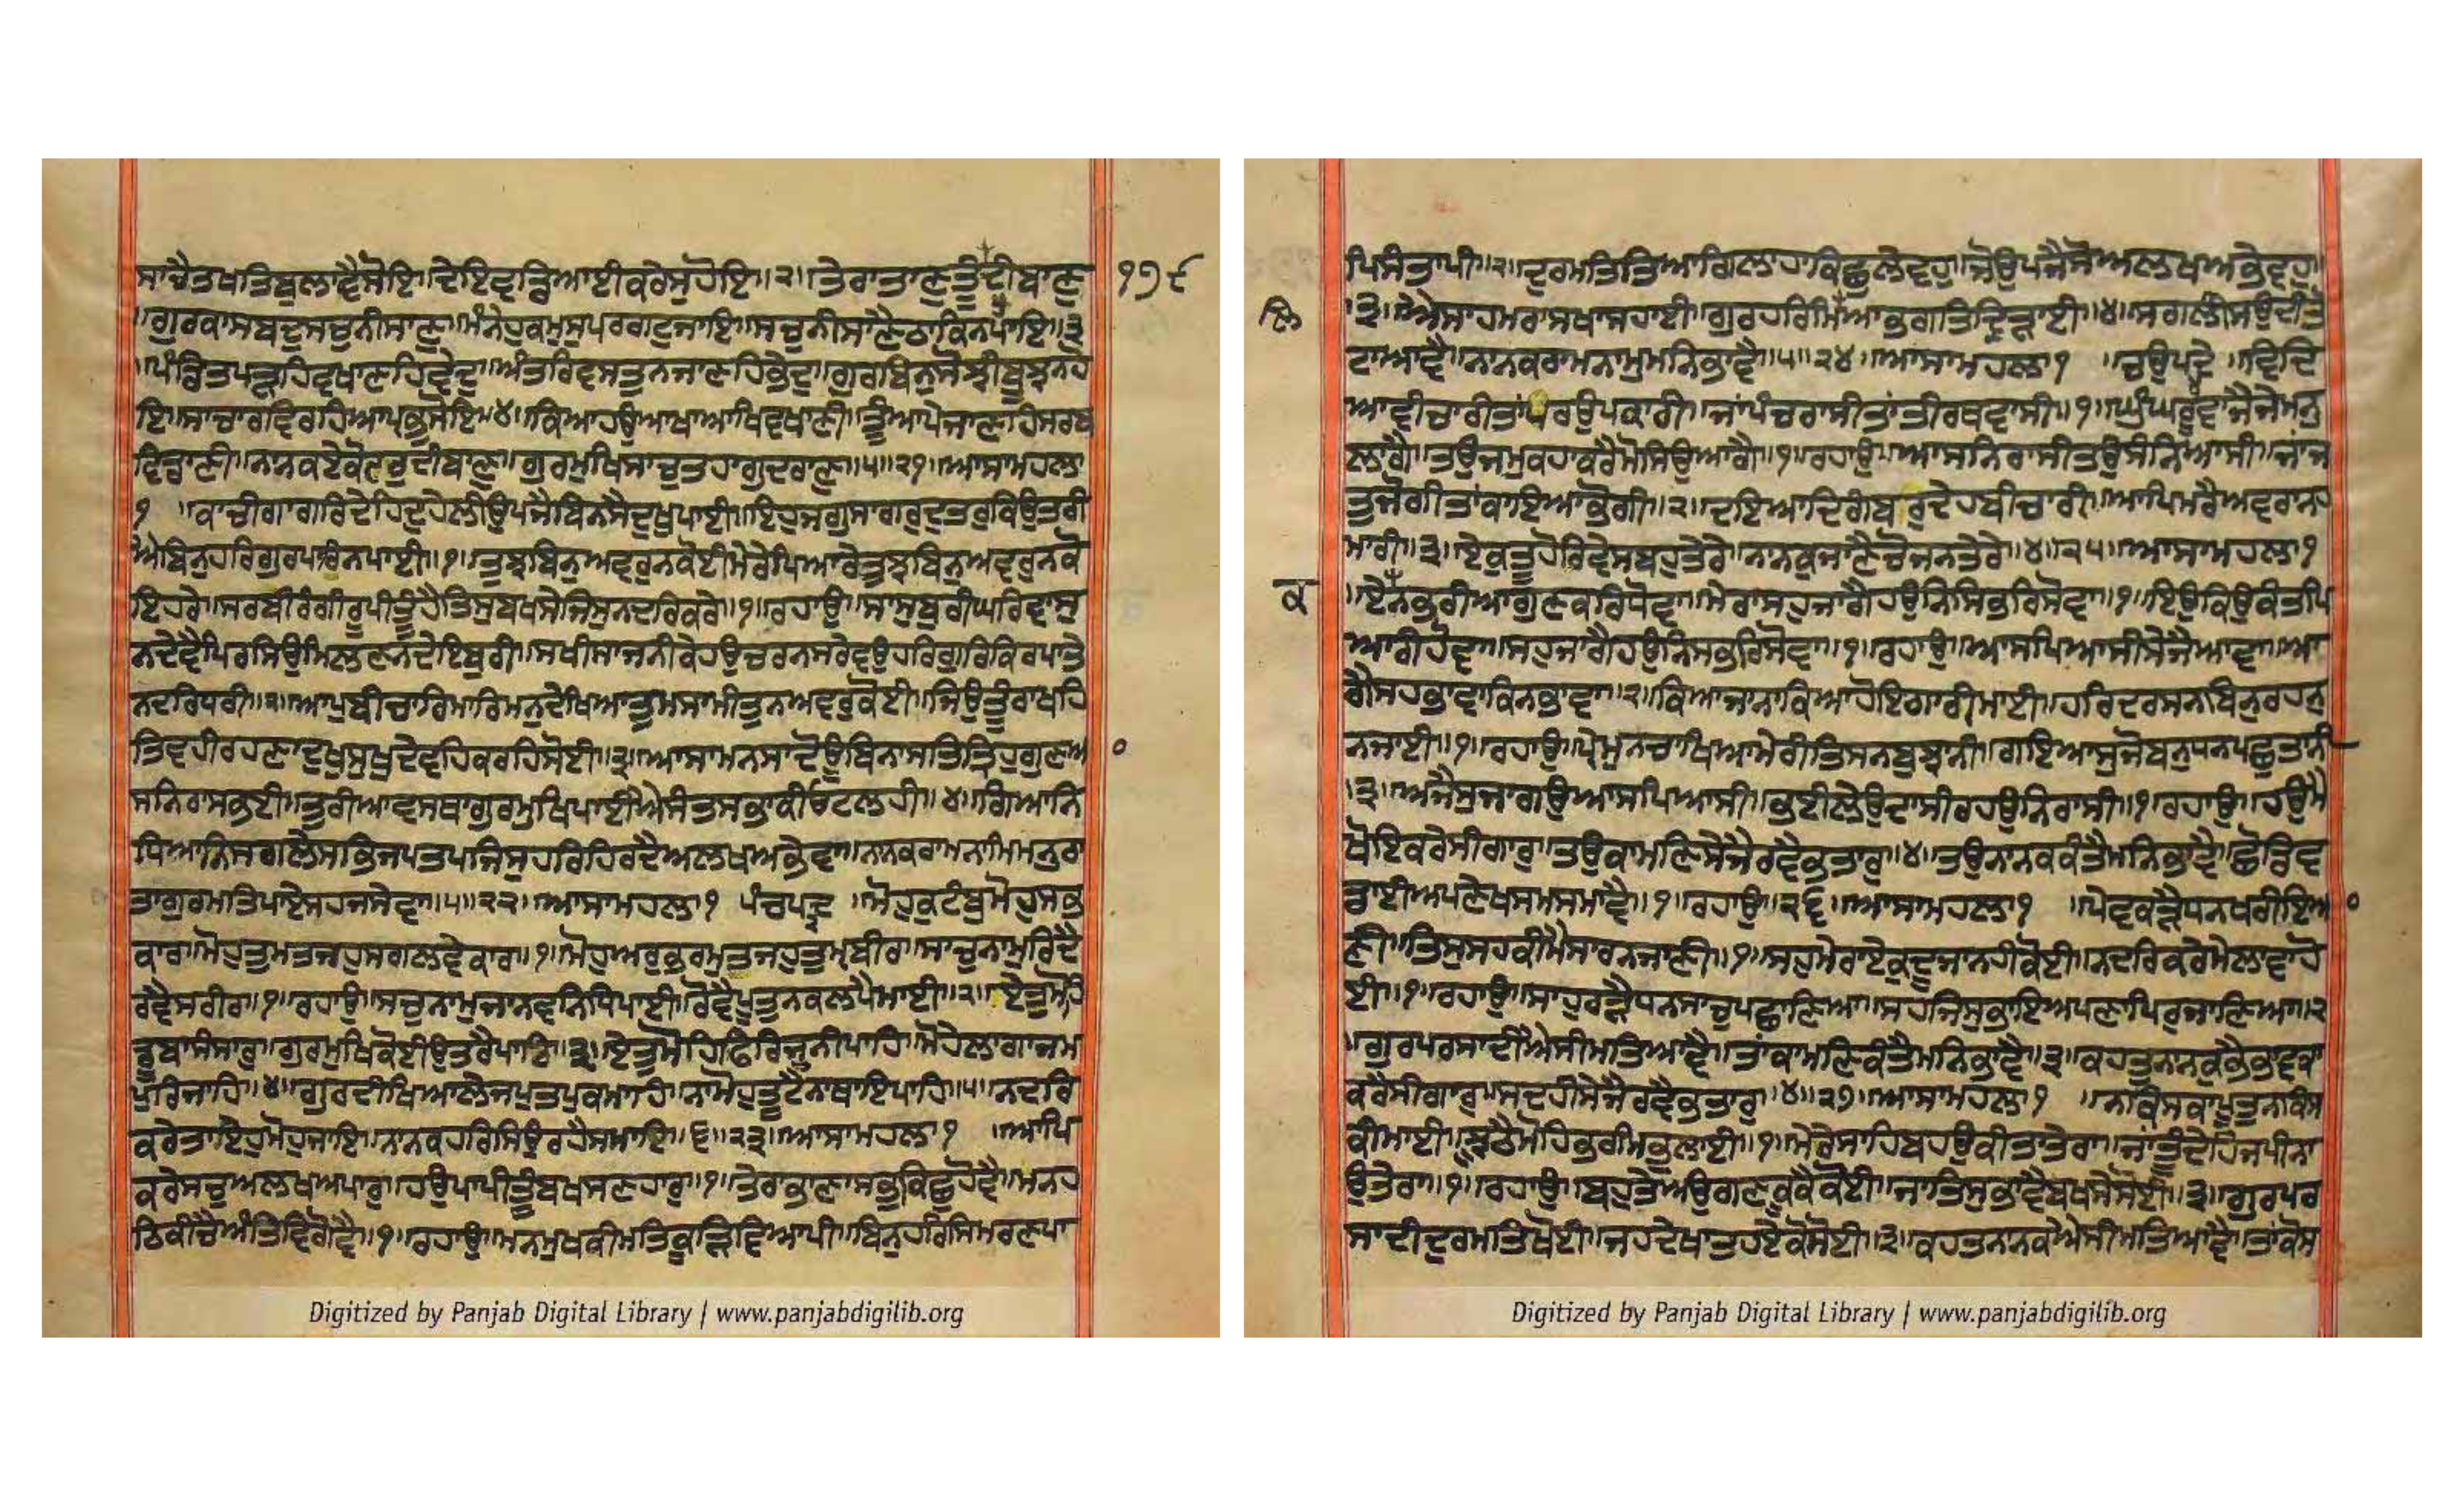 ਸਾਚੈਤਖਤਿਬੁਲਾਵੈਸੋਇ॥ਦੇਇਵਡਿਆਈਕਰੇਸੁਹੋਇ॥੨॥ਤੇਰਾਤਾਣੁਤੂੰਦੀਬਾਣੁ
੧੭੯
॥ਗੁਰਕਾਸਬਦੁਸਚੁਨੀਸਾਣੁ॥ਮੰਨੇਹੁਕਮੁਸੁਪਰਗਟੁਜਾਇ॥ਸਚੁਨੀਸਾਣੈਠਾਕਿਨਪਾਇ॥੩
॥ਪੰਡਿਤਪੜਹਿਵਖਾਣਹਿਵੇਦੁ॥ਅੰਤਰਿਵਸਤੁਨਜਾਣਹਿਭੇਦੁ॥ਗੁਰਬਿਨੁਸੋਝੀਬੂਝਨਹੋ
ਇ॥ਸਾਚਾਰਵਿਰਹਿਆਪ੍ਰਭੁਸੋਇ॥੪॥ਕਿਆਹਉਆਖਾਆਖਿਵਖਾਣੀ॥ਤੂੰਆਪੇਜਾਣਹਿਸਰਬ
ਵਿਡਾਣੀ॥ਨਾਨਕਏਕੋਦਰੁਦੀਬਾਣੁ॥ਗੁਰਮੁਖਿਸਾਚੁਤਹਾਗੁਦਰਾਣੁ॥੫॥੨੧॥ਆਸਾਮਹਲਾ
੧ ॥ਕਾਚੀਗਾਗਰਿਦੇਹਦੁਹੇਲੀਉਪਜੈਬਿਨਸੈਦੁਖੁਪਾਈ॥ਇਹੁਜਗੁਸਾਗਰੁਦੁਤਰੁਕਿਉਤਰੀ
ਐਬਿਨੁਹਰਿਗੁਰਪਾਰਿਨਪਾਈ॥੧॥ਤੁਝਬਿਨੁਅਵਰੁਨਕੋਈਮੇਰੇਪਿਆਰੇਤੁਝਬਿਨੁਅਵਰੁਨਕੋ
ਇਹਰੇ॥ਸਰਬੀਰੰਗੀਰੂਪੀਤੂੰਹੈਤਿਸੁਬਖਸੇਜਿਸੁਨਦਰਿਕਰੇ॥੧॥ਰਹਾਉ॥ਸਾਸੁਬੁਰੀਘਰਿਵਾਸੁ
ਨਦੇਵੈਪਿਰਸਿਉਮਿਲਣਨਦੇਇਬੁਰੀ॥ਸਖੀਸਾਜਨੀਕੇਹਉਚਰਨਸਰੇਵਉਹਰਿਗੁਰਿਕਿਰਪਾਤੇ
ਨਦਰਿਧਰੀ॥੨॥ਆਪੁਬੀਚਾਰਿਮਾਰਿਮਨੁਦੇਖਿਆਤੁਮਸਾਮੀਤੁਨਅਵਰੁਕੋਈ॥ਜਿਉਤੂੰਰਾਖਹਿ
ਤਿਵਹੀਰਹਣਾਦੁਖੁਸੁਖੁਦੇਵਹਿਕਰਹਿਸੋਈ॥੩॥ਆਸਾਮਨਸਾਦੋਊਬਿਨਾਸਤਤ੍ਰਿਹੁਗੁਣਆ
ਸਨਿਰਾਸਭਈ॥ਤੁਰੀਆਵਸਥਾਗੁਰਮੁਖਿਪਾਈਐਸੰਤਸਭਾਕੀਓਟਲਹੀ॥੪॥ਗਿਆਨ
ਧਿਆਨਸਗਲੇਸਭਿਜਪਤਪਜਿਸੁਹਰਿਹਿਰਦੈਅਲਖਅਭੇਵਾ॥ਨਾਨਕਰਾਮਨਾਮਿਮਨੁਰਾ
ਤਾਗੁਰਮਤਿਪਾਏਸਹਜਸੇਵਾ॥੫॥੨੨॥ਆਸਾਮਹਲਾ੧ ਪੰਚਪਦੇ ॥ਮੋਹੁਕੁਟੰਬੁਮੋਹੁਸਭ
ਕਾਰ॥ਮੋਹੁਤੁਮਤਜਹੁਸਗਲਵੇਕਾਰ॥੧॥ਮੋਹੁਅਰੁਭਰਮੁਤਜਹੁਤੁਮ੍ਹਬੀਰ॥ਸਾਚੁਨਾਮੁਰਿਦੈ
ਰਵੈਸਰੀਰ॥੧॥ਰਹਾਉ॥ਸਚੁਨਾਮੁਜਾਨਵਨਿਧਿਪਾਈ॥ਰੋਵੈਪੂਤੁਨਕਲਪੈਮਾਈ॥੨॥ਏਤੁਮੋਹਿ
ਡੂਬਾਸੰਸਾਰੁ॥ਗੁਰਮੁਖਿਕੋਈਉਤਰੈਪਾਰਿ॥੩॥ਏਤੁਮੋਹਿਫਿਰਿਜੂਨੀਪਾਹਿ॥ਮੋਹੇਲਾਗਾਜਮ
ਪੁਰਿਜਾਹਿ॥੪॥ਗੁਰਦੀਖਿਆਲੇਜਪੁਤਪੁਕਮਾਹਿ॥ਨਾਮੋਹੁਤੂਟੈਨਾਥਾਇਪਾਹਿ॥੫॥ਨਦਰਿ
ਕਰੇਤਾਏਹੁਮੋਹੁਜਾਇ॥ਨਾਨਕਹਰਿਸਿਉਰਹੈਸਮਾਇ॥੬॥੨੩॥ਆਸਾਮਹਲਾ੧ ॥ਆਪਿ
ਕਰੇਸਚੁਅਲਖਅਪਾਰੁ॥ਹਉਪਾਪੀਤੂੰਬਖਸਣਹਾਰੁ॥੧॥ਤੇਰਾਭਾਣਾਸਭੁਕਿਛੁਹੋਵੈ॥ਮਨਹ
ਠਿਕੀਚੈਅੰਤਿਵਿਗੋਵੈ॥੧॥ਰਹਾਉ॥ਮਨਮੁਖਕੀਮਤਿਕੂੜਿਵਿਆਪੀ॥ਬਿਨੁਹਰਿਸਿਮਰਣਪਾ
ਪਿਸੰਤਾਪੀ॥੨॥ਦੁਰਮਤਿਤਿਆਗਿਲਾਹਾਕਿਛੁਲੇਵਹੁ॥ਜੋਉਪਜੈਸੋਅਲਖਅਭੇਵਹੁ
॥੩॥ਐਸਾਹਮਰਾਸਖਾਸਹਾਈ॥ਗੁਰਹਰਿਮਿਲਿਆਭਗਤਿਦ੍ਰਿੜਾਈ॥੪॥ਸਗਲੀਸਉਦੀਤੋ
ਟਾਆਵੈ॥ਨਾਨਕਰਾਮਨਾਮੁਮਨਿਭਾਵੈ॥੫॥੨੪॥ਆਸਾਮਹਲਾ੧ ॥ਚਉਪਦੇ ॥ਵਿਦਿ
ਆਵੀਚਾਰੀਤਾਂਪਰਉਪਕਾਰੀ॥ਜਾਂਪੰਚਰਾਸੀਤਾਂਤੀਰਥਵਾਸੀ॥੧॥ਘੁੰਘਰੂਵਾਜੈਜੇਮਨੁ
ਲਾਗੈ॥ਤਉਜਮੁਕਹਾਕਰੇਮੋਸਿਉਆਗੈ॥੧॥ਰਹਾਉ॥ਆਸਨਿਰਾਸੀਤਉਸੰਨਿਆਸੀ॥ਜਾਂਜ
ਤੁਜੋਗੀਤਾਂਕਾਇਆਭੋਗੀ॥੨॥ਦਇਆਦਿਗੰਬਰੁਦੇਹਬੀਚਾਰੀ॥ਆਪਿਮਰੈਅਵਰਾਨਹ
ਮਾਰੀ॥੩॥ਏਕੁਤੂਹੋਰਿਵੇਸਬਹੁਤੇਰੇ॥ਨਾਨਕੁਜਾਣੈਚੋਜਨਤੇਰੇ॥੪॥੨੫॥ਆਸਾਮਹਲਾ੧
॥ਏਕਨਭਰੀਆਗੁਣਕਰਿਧੋਵਾ॥ਮੇਰਾਸਹੁਜਾਗੈਹਉਨਿਸਿਭਰਿਸੋਵਾ॥੧॥ਇਉਕਿਉਕੰਤਪਿ
ਆਰੀਹੋਵਾ॥ਸਹੁਜਾਗੈਹਉਨਿਸਭਰਿਸੋਵਾ॥੧॥ਰਹਾਉ॥ਆਸਪਿਆਸੀਸੇਜੈਆਵਾ॥ਆ
ਗੈਸਹਭਾਵਾਕਿਨਭਾਵਾ॥੨॥ਕਿਆਜਾਨਾਕਿਆਹੋਇਗਾਰੀਮਾਈ॥ਹਰਿਦਰਸਨਬਿਨੁਰਹਨੁ
ਨਜਾਈ॥੧॥ਰਹਾਉ॥ਪ੍ਰੇਮੁਨਚਾਖਿਆਮੇਰੀਤਿਸਨਬੁਝਾਨੀ॥ਗਇਆਸੁਜੋਬਨੁਧਨਪਛੁਤਾਨੀ
॥੩॥ਅਜੈਸੁਜਾਗਉਆਸਪਿਆਸੀ॥ਭਈਲੇਉਦਾਸੀਰਹਉਨਿਰਾਸੀ॥੧॥ਰਹਾਉ॥ਹਉਮੈ
ਖੋਇਕਰੇਸੀਗਾਰੁ॥ਤਉਕਾਮਣਿਸੇਜੈਰਵੈਭਤਾਰੁ॥੪॥ਤਉਨਾਨਕਕੰਤੈਮਨਿਭਾਵੈ॥ਛੋਡਿਵ
ਡਾਈਅਪਣੇਖਸਮਸਮਾਵੈ॥੧॥ਰਹਾਉ॥੨੬॥ਆਸਾਮਹਲਾ੧ ॥ਪੇਵਕੜੈਧਨਖਰੀਇਆ
ਣੀ॥ਤਿਸੁਸਹਕੀਮੈਸਾਰਨਜਾਣੀ॥੧॥ਸਹੁਮੇਰਾਏਕੁਦੂਜਾਨਹੀਕੋਈ॥ਨਦਰਿਕਰੇਮੇਲਾਵਾਹੋ
ਈ॥੧॥ਰਹਾਉ॥ਸਾਹੁਰੜੈਧਨਸਾਚੁਪਛਾਣਿਆ॥ਸਹਜਿਸੁਭਾਇਅਪਣਾਪਿਰੁਜਾਣਿਆ॥੨
॥ਗੁਰਪਰਸਾਦੀਐਸੀਮਤਿਆਵੈ॥ਤਾਂਕਾਮਣਿਕੰਤੈਮਨਿਭਾਵੈ॥੩॥ਕਹਤੁਨਾਨਕੁਭੈਭਾਵਕਾ
ਕਰੇਸੀਗਾਰੁ॥ਸਦਹੀਸੇਜੈਰਵੈਭਤਾਰੁ॥੪॥੨੭॥ਆਸਾਮਹਲਾ੧ ॥ਨਾਕਿਸਕਾਪੂਤੁਨਾਕਿਸ
ਕੀਮਾਈ॥ਝੂਠੈਮੋਹਿਭਰਮਿਭੁਲਾਈ॥੧॥ਮੇਰੇਸਾਹਿਬਹਉਕੀਤਾਤੇਰਾ॥ਜਾਂਤੂੰਦੇਹਿਜਪੀਨਾ
ਉਤੇਰਾ॥੧॥ਰਹਾਉ॥ਬਹੁਤੇਅਉਗਣਕੂਕੈਕੋਈ॥ਜਾਤਿਸੁਭਾਵੈਬਖਸੇਸੋਈ॥੨॥ਗੁਰਪਰ
ਸਾਦੀਦੁਰਮਤਿਖੋਈ॥ਜਹਦੇਖਾਤਹਏਕੋਸੋਈ॥੩॥ਕਹਤਨਾਨਕਐਸੀਮਤਿਆਵੈ॥ਤਾਂਕੋਸ
Digitized by Panjab Digital Library | www.panjabdigilib.org
Digitized by Panjab Digital Library | www.panjabdigilib.org